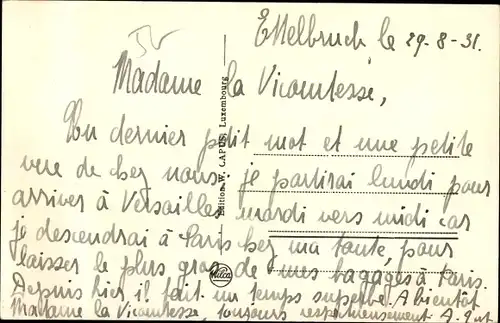 Ettelbruck le 29-8-31.
Madame la Vicomtesse,
Un dernier petit mot et une petite
vue de chez nous. je partirai lundi pour
arriver à Versailles mardi vers midi car
je descendrai à Paris chez ma tante, pour
laisser le plus gros de mes bagages à Paris.
Depuis hier, il fait un temps superbe. A bientôt
Madame la Vicomtesse, toujours respectueusement
Edition W. CAPUS, Luxembourg